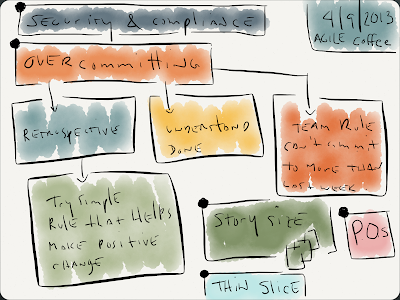 SECURITY & COMPLIANCE
4/9/2013
AGILE COFFEE
OVERCOMMITTING
RETROSPECTIVE
UNDERSTAND
DONE
TEAM RULE
CAN'T COMMIT
TO MORE THAN
LAST WEEK
TRY SIMPLE
RULE that HELPS
MAKE POSITIVE
CHANGE
STORY SIZE
POs
THIN SLICE